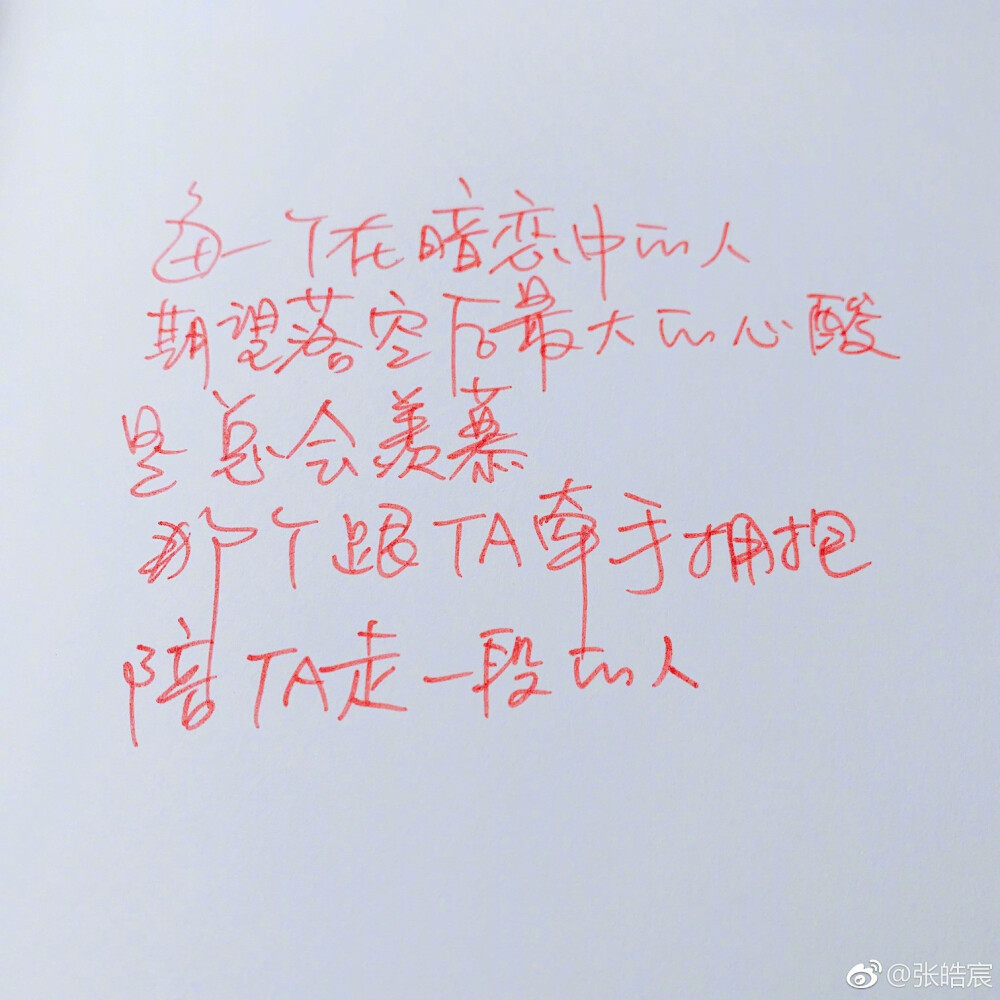 每一个在暗恋中的人
期望落空后最大的心酸
是总会羡慕
那个跟TA牵手拥抱
陪TA走一段的人
@张皓宸